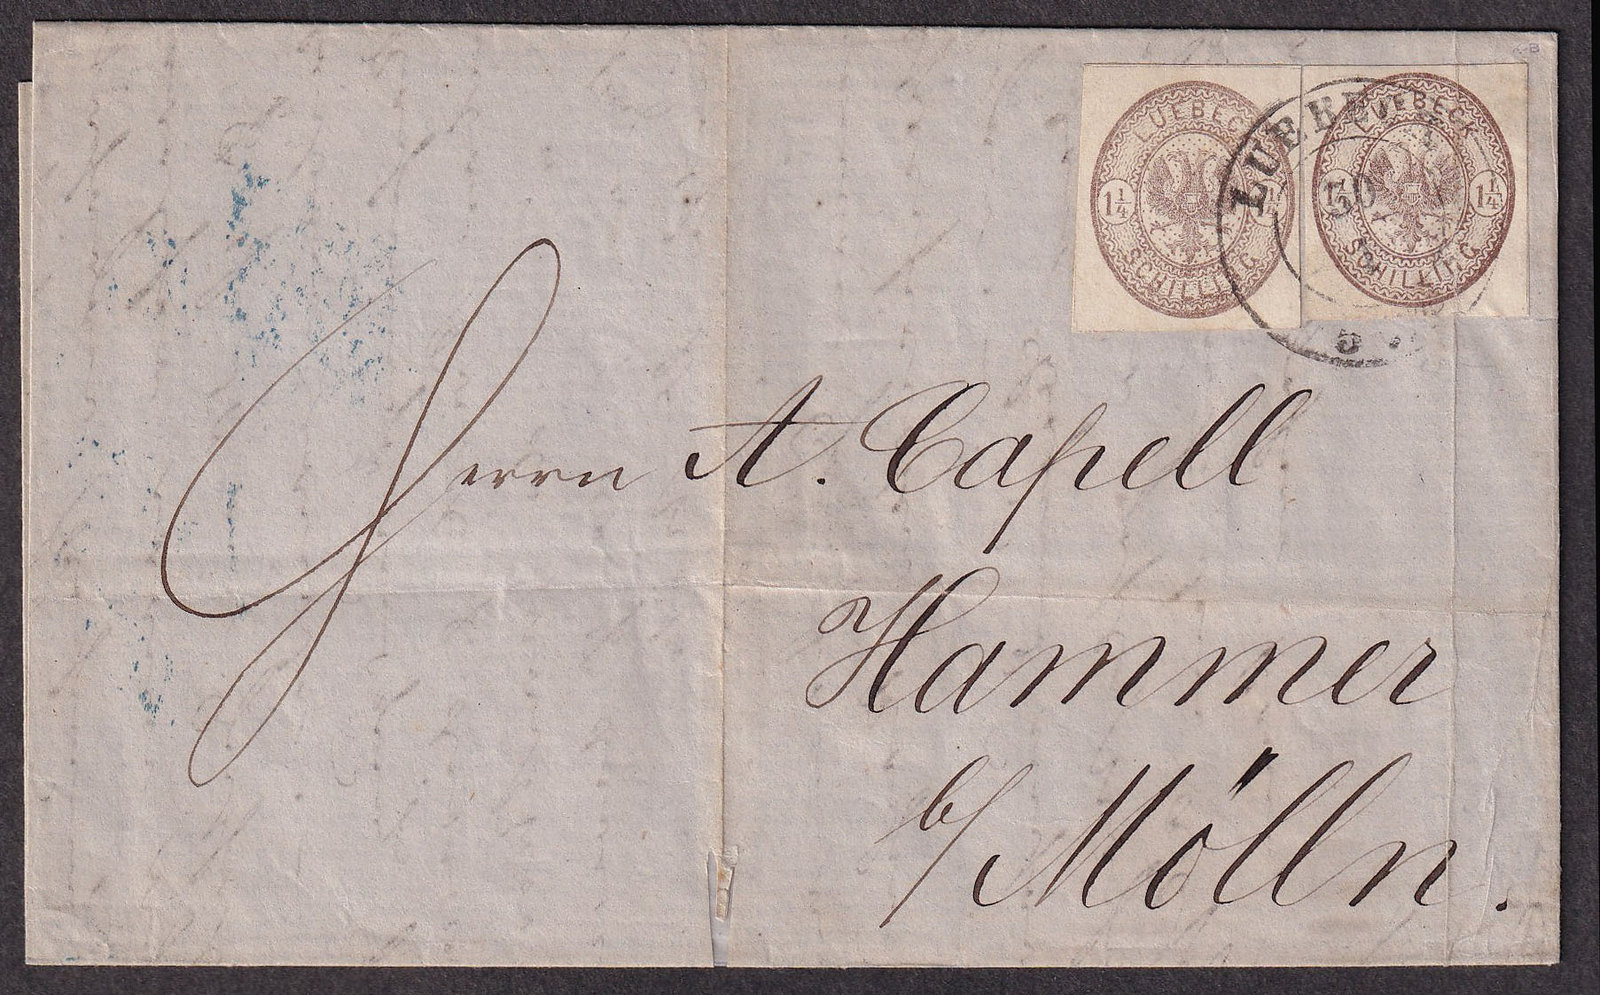 LUEBECK
1¼
SCHILLING
LUEBECK
1¼ 1¼
SCHILLING
LUEBECK
30
5
Herrn A. Capell
Hammer
b/ Mölln.